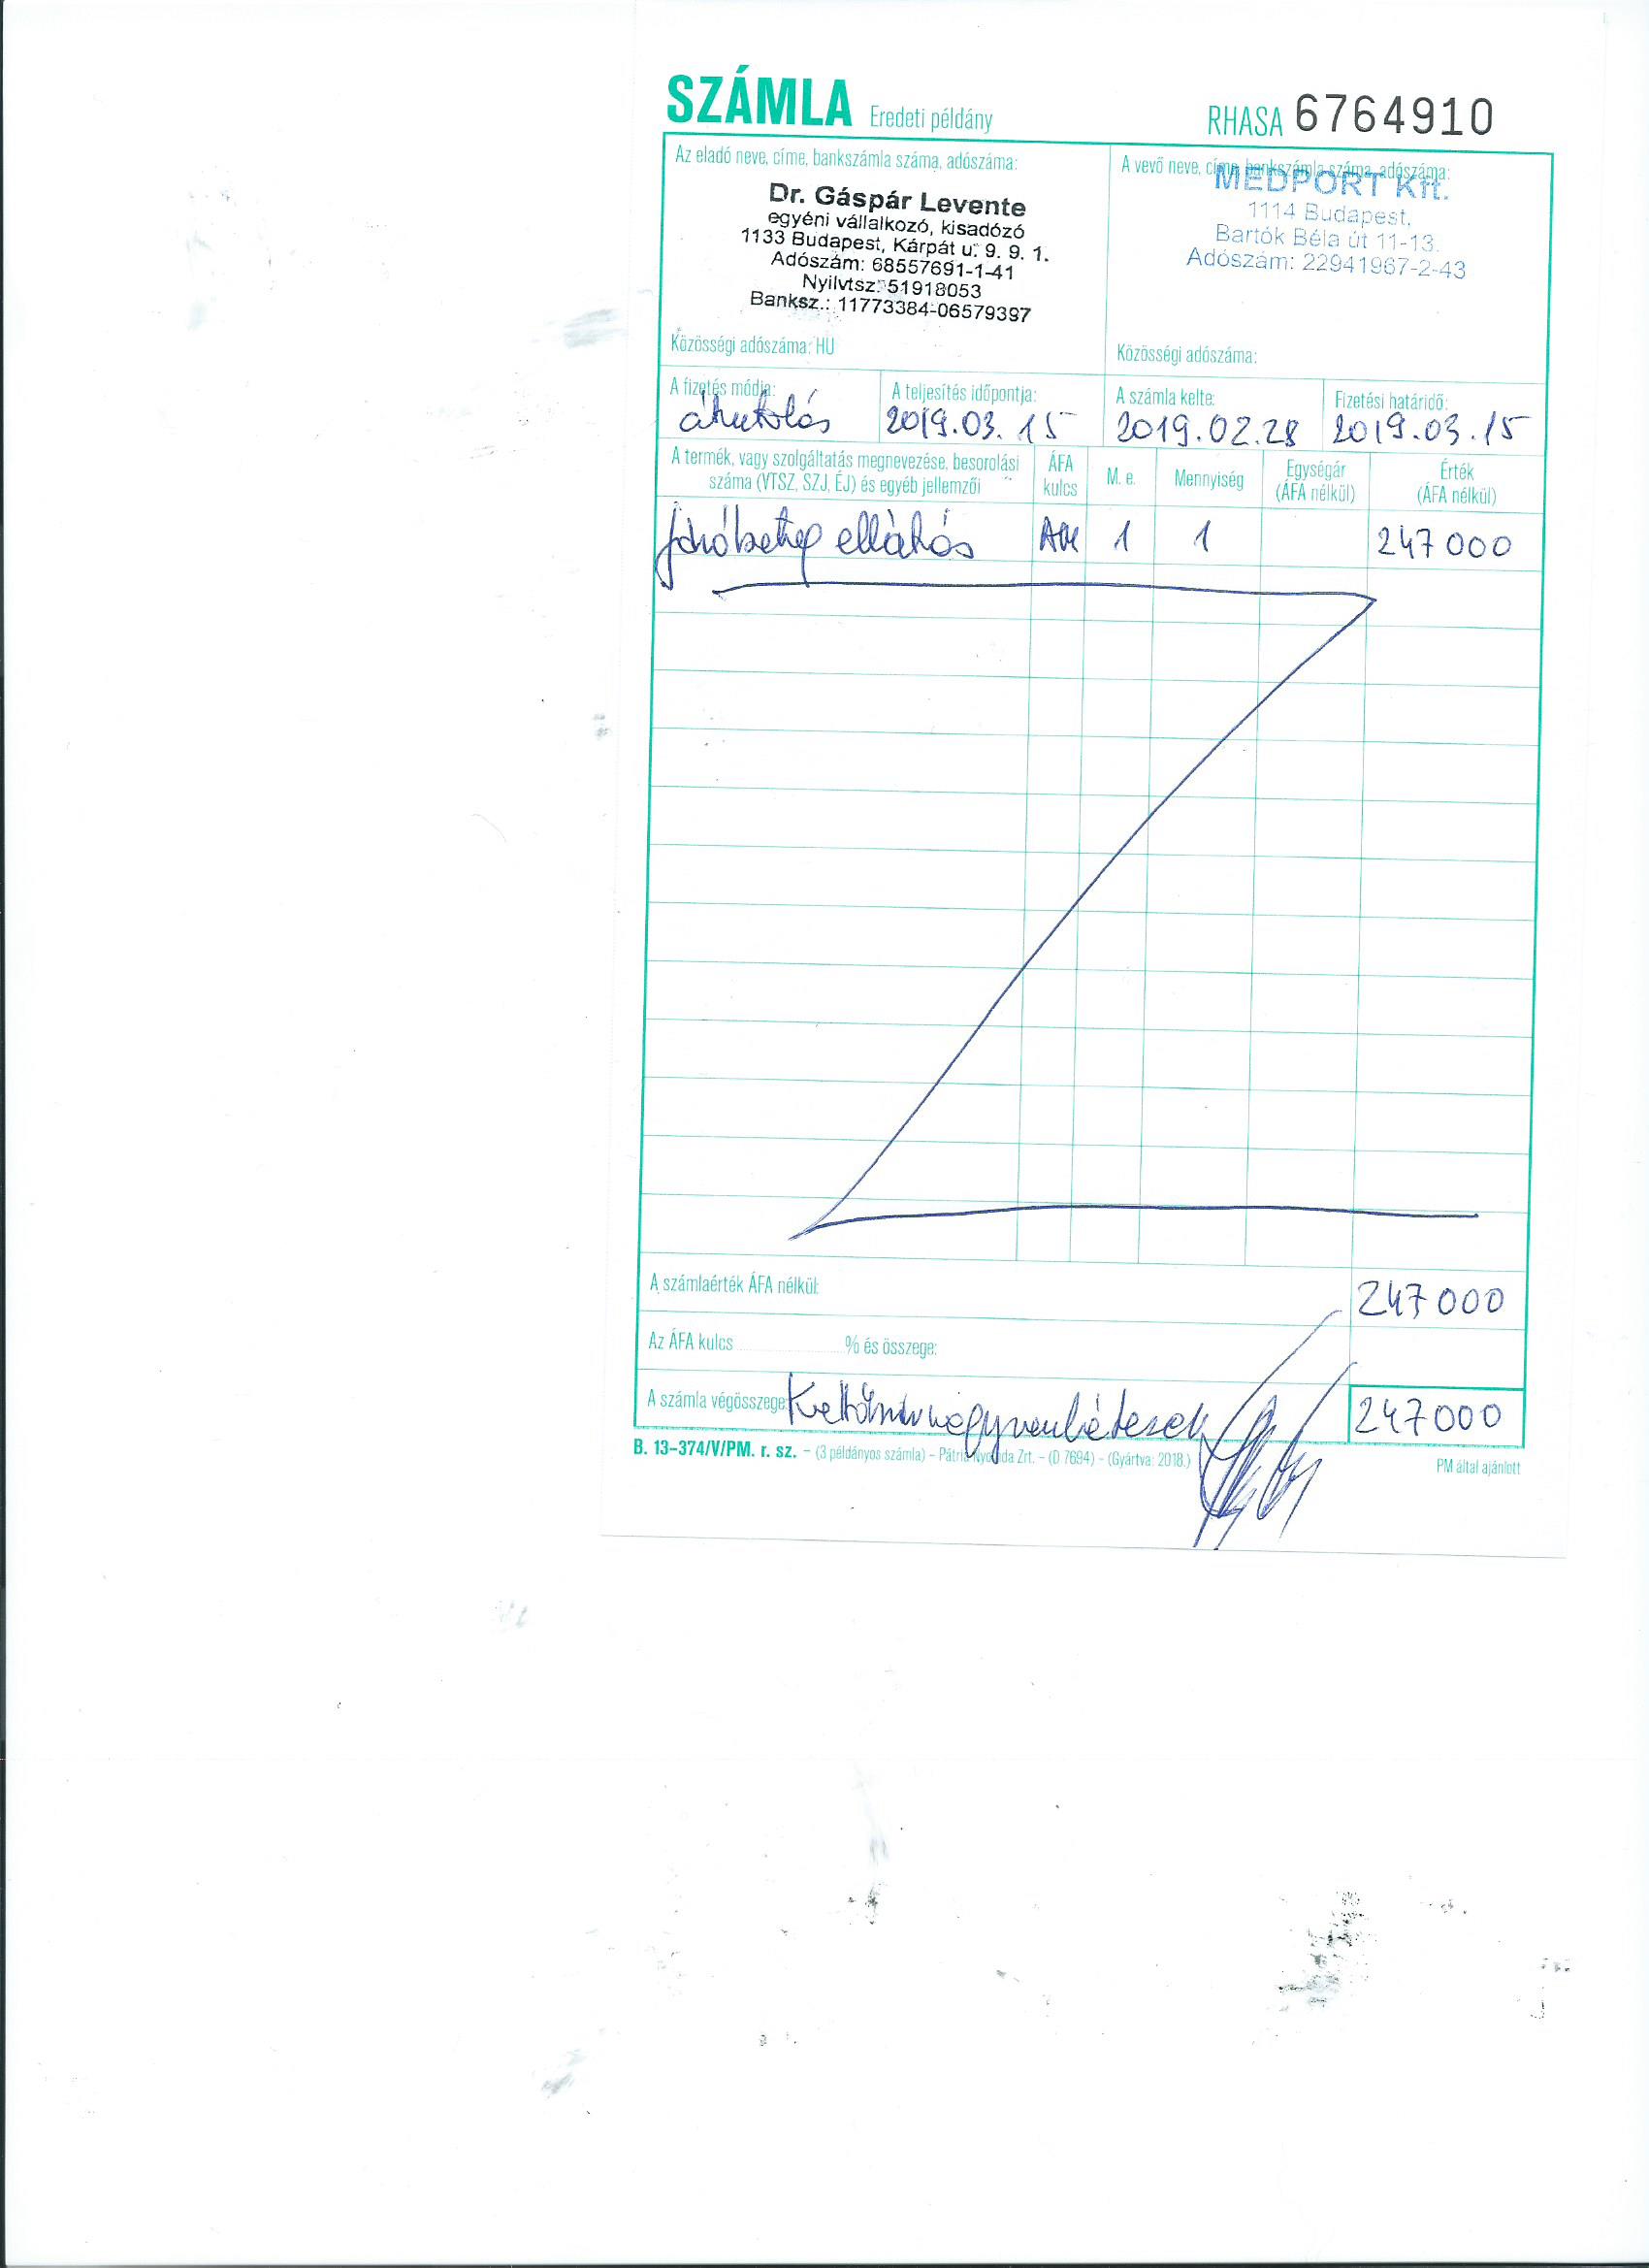 SZÁMLA Eredeti példány RHASA 6764910
Az eladó neve, címe, bankszámla száma, adószáma:
Dr. Gáspár Levente
egyéni vállalkozó, kisadózó
1133 Budapest, Kárpát u. 9. 9. 1.
Adószám: 68557691-1-41
Nyilvtsz: 51918053
Banksz.: 11773384-06579397
Közösségi adószáma: HU
A vevő neve, címe, bankszámla száma, adószáma:
MEDPORT Kft.
1114 Budapest,
Bartók Béla út 11-13.
Adószám: 22941967-2-43
Közösségi adószáma:
A fizetés módja:
átutalás
A teljesítés időpontja:
2019.03.15
A számla kelte:
2019.02.28
Fizetési határidő:
2019.03.15
A termék, vagy szolgáltatás megnevezése, besorolási
száma (VTSZ, SZJ, ÉJ) és egyéb jellemzői
ÁFA
kulcs
M. e.
Mennyiség
Egységár
(ÁFA nélkül)
Érték
(ÁFA nélkül)
járóbeteg ellátás 1 1 247 000
A számlaérték ÁFA nélkül: 247 000
Az ÁFA kulcs % és összege:
A számla végösszege: Kettőszáznegyvenhétezer 247 000
B. 13-374/V/PM. r. sz. – (3 példányos számla) – Pátria Nyomda Zrt. – (D 7694) – (Gyártva: 2018.)
PM által ajánlott